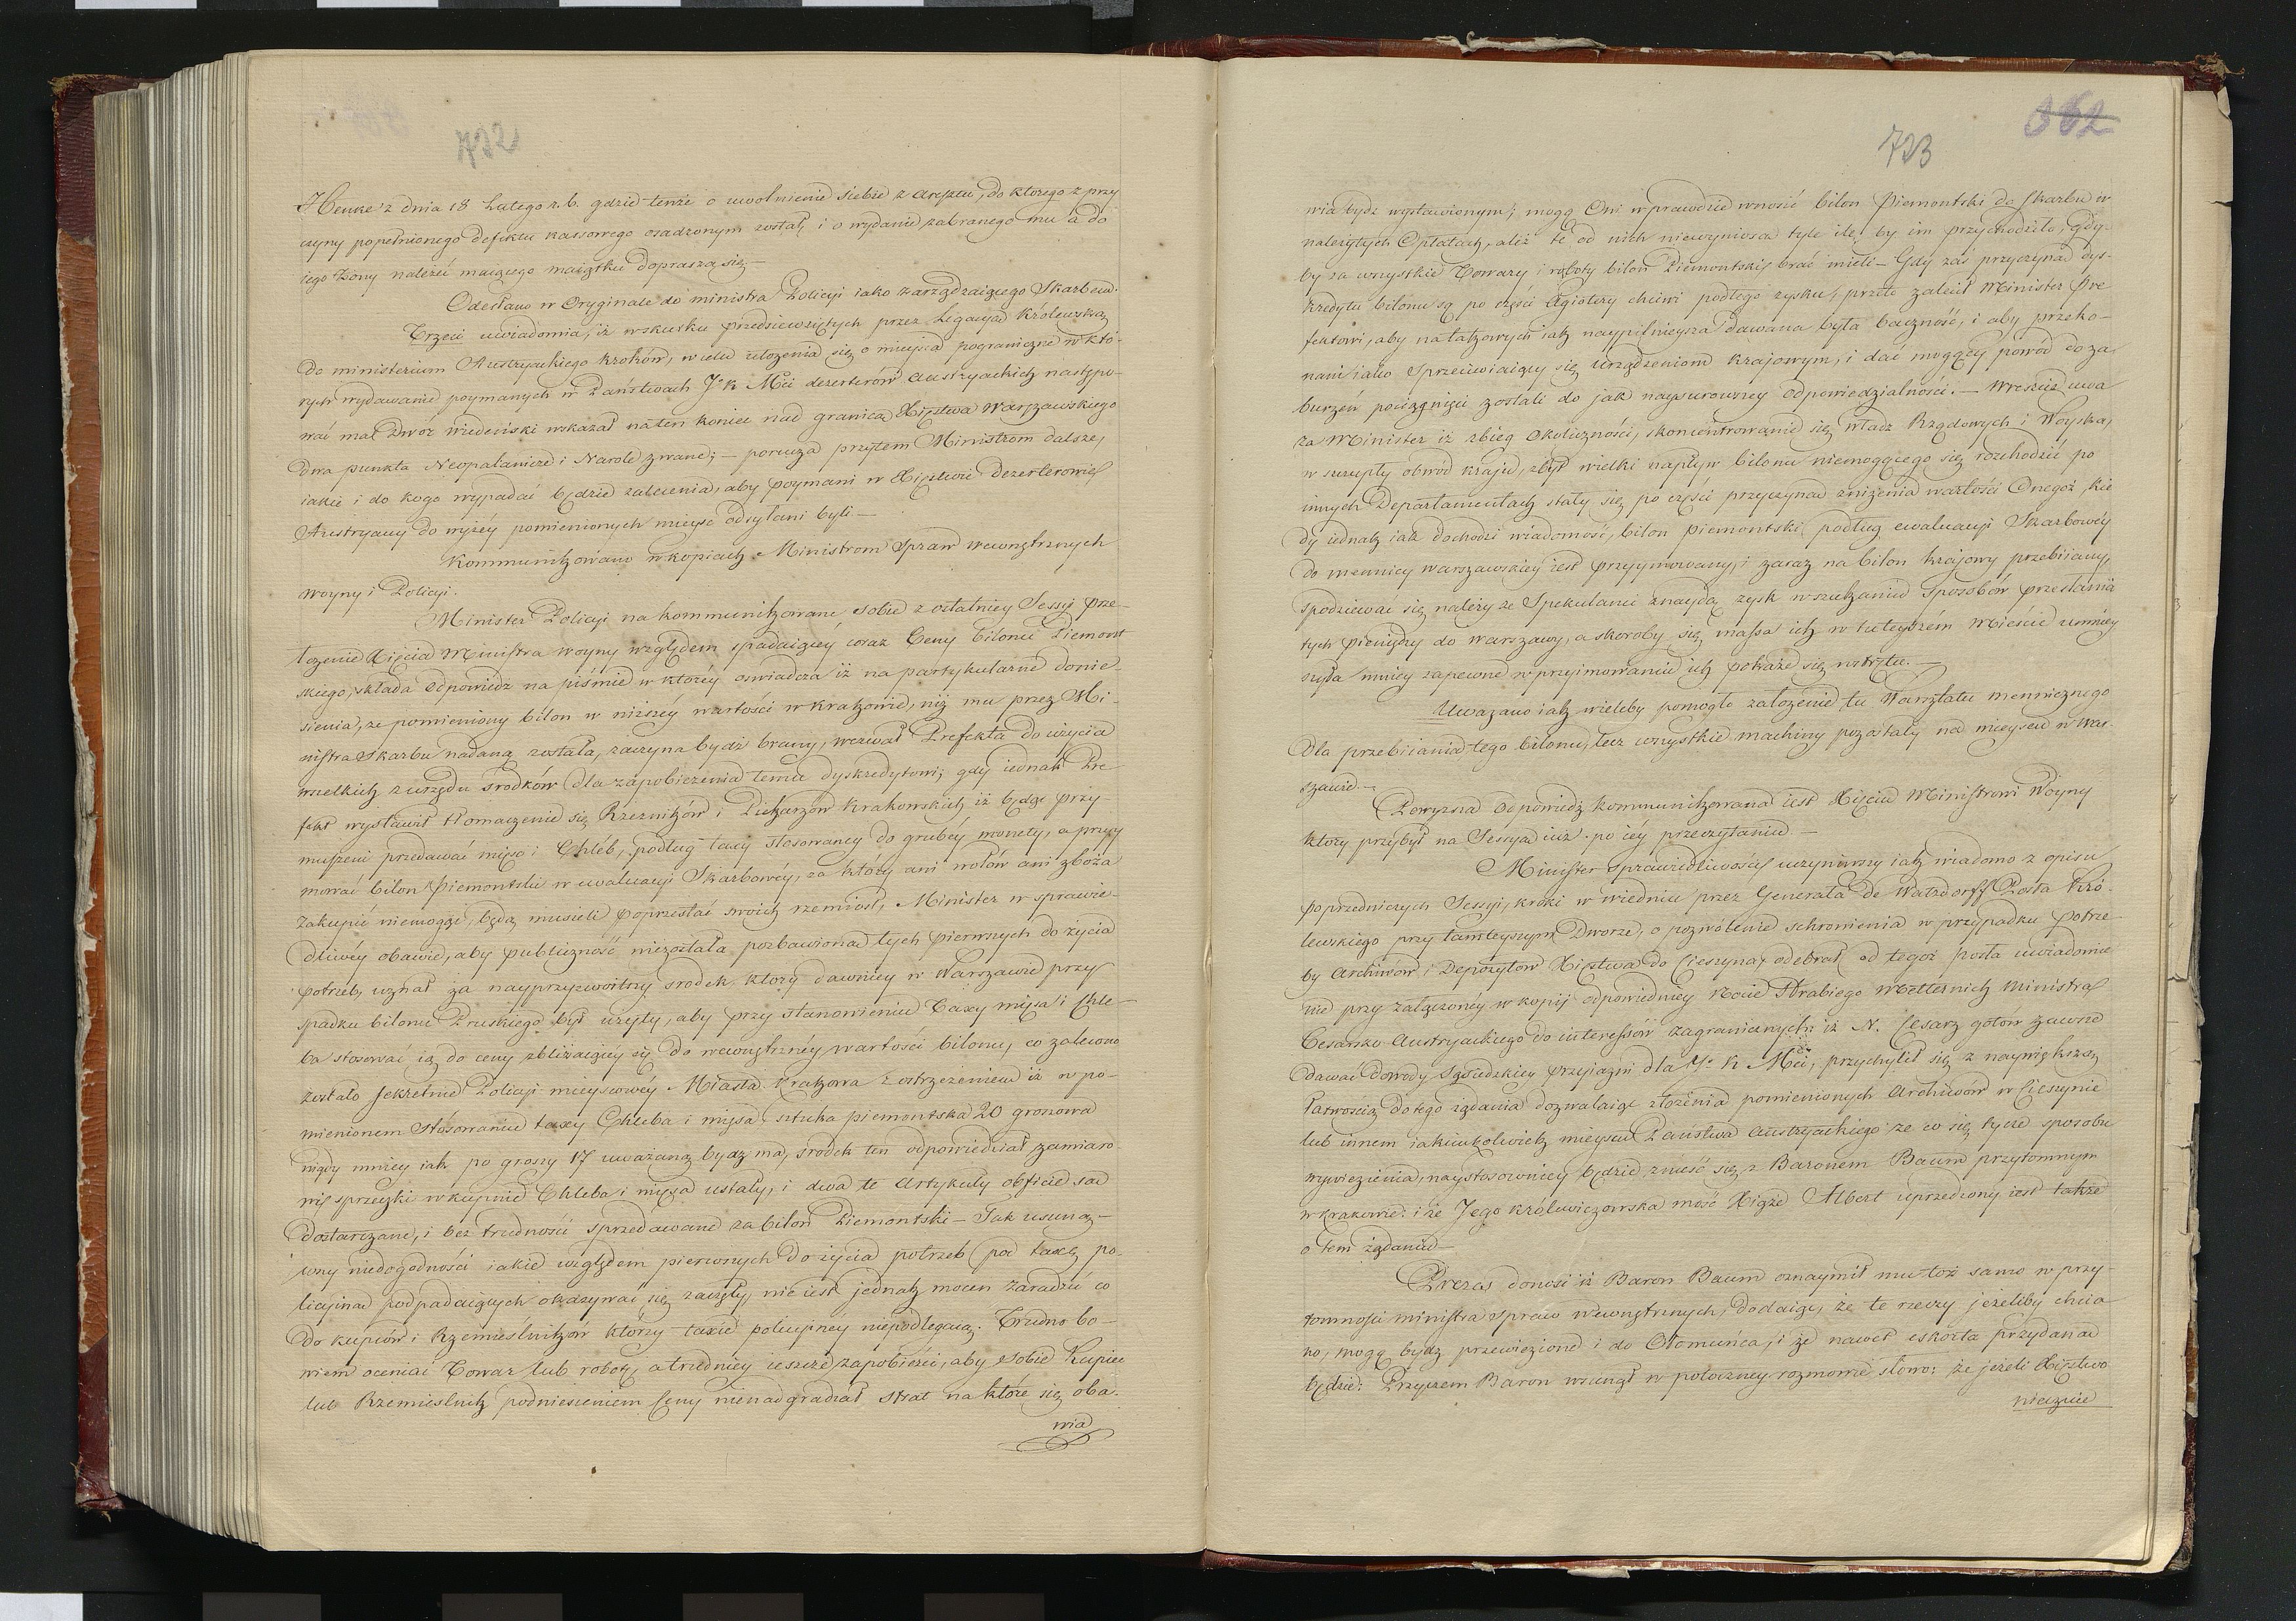 722
Henke z dnia 18 Lutego r. b. gdzie tenże o uwolnienie siebie z aresztu, do którego z przy
czyny popełnionego defektu kassowego osadzonym został, i o wydanie zabranego mu a do
iego Żony należéć maiącego maiątku doprasza się. —
Odesłano w Oryginale do ministra Policyi iako zarządzaiącego Skarbem.
Trzeci uwiadomia, iż wskutku przedsiewziętych przez Legacyą Królewską
do ministerium Austryackiego kroków, w celu ułożenia się o mieysca pograniczne w któ-
rych wydawanie poymanych w Państwach J. K. Mci dezerterów austryackich następo-
wać ma Dwór wiedeński wskazał na ten koniec nad granicą Xięstwa Warszawskiego
dwa punkta Neopałanice i Narole zwane; — porucza przytem Ministrom dalsze,
iakie i do kogo wypadać będzie zalecenia, aby poymani w Xięstwie Dezerterowie
Austryaccy do wyżéy pomienionych mieysc odsyłani byli —
Kommunikowano w kopiach Ministrom Spraw wewnętrznych
Woyny i Policyi.
Minister Policyi na kommunikowane sobie z ostatniey Sessyi prze-
łożenie Xięcia Ministra woyny względem spadaiącey coraz Ceny bilonu Piemont
skiego, składa odpowiedź na piśmie w któréy oswiadcza iż na partykularne donie-
sienia, że pomieniony bilon w niższey wartości w Krakowie, niż mu przez Mi-
nistra Skarbu nadaną została, zaczyna bydź brany, wezwał Prefekta do użycia
wszelkich z urzędu srodków dla zapobieżenia temu dyskredytowi; gdy iednak Pre
fekt wystawił tłomaczenie się Rzeźników i Piekarzów Krakowskich iż będąc przy-
muszeni przedawać mięso i Chléb, podług taxy stosowaney do grubéy monety, a przyy
mować bilon piemontski w ewaluacyi Skarbowéy, za który ani wołów ani zboża
zakupić niemogąc, będą musieli poprzestać swoich rzemiosł, Minister w sprawie-
dliwéy obawie, aby publiczność niezostała pozbawiona tych pierwszych do życia
potrzeb, uznał za nayprzyzwoitszy srodek, który dawniey w Warszawie przy
spadku bilonu Pruskiego był użyty, aby przy stanowieniu Taxy mięsa i Chle-
ba stosować ią do ceny zbliżaiącey się do wewnętrznéy wartości bilonu, co zalecono
zostało sekretnie Policyi mieyscowéy Miasta Krakowa z ostrzeżeniem iż w po-
mienionem stósowaniu taxy Chleba i mięsa, sztuka piemontska 20 groszowa
nigdy mniey iak po groszy 17 uważaną bydź ma, srodek ten odpowiedział zamiaro
wi, sprzeczki w kupnie Chleba i mięsa ustały, i dwa te artykuły obficie są
dostarczane, i bez trudności sprzedawane za bilon Piemontski — Tak usuną-
wszy niedogodności iakie względem pierwszych do życia potrzeb pod taxę po-
licyiną podpadaiących okazywać się zaczęły, nie iest jednak mocen zaradzić co
do kupców i Rzemieślników którzy taxie policyiney niepodlegaią. Trudno bo-
wiem oceniać Towar lub robotę, a trudniey ieszcze zapobieżeć, aby sobie Kupiec
lub Rzemieslnik podniesieniem Ceny nienadgradzał strat na które się oba-
wia
362
723
wia bydź wystawionym; mogą Oni wprawdzie wnosić bilon Piemontski do Skarbu w
należytych Opłatach, aliż te od nich niewyniosą tyle ile, by im przychodziło, gdy-
by za wszystkie Towary i roboty bilon Piemontski brać mieli — Gdy zaś przyczyną dys-
kredytu bilonu są po części Agiotery chciwi podłego zysku; przeto zalecił Minister Pre
fektowi, aby na takowych iak naypilnieysza dawana była baczność, i aby przeko-
nani iako sprzeciwiaiący się urządzeniom Krajowym, i dać mogący powód do za
burzeń pociągnięci zostali do jak naysurowszey odpowiedzialności. — Wreszcie uwa
ża Minister iż zbieg okoliczności, skoncentrowanie się władz Rządowych i Woyska,
w szczupły obwód kraju, zbyt wielki napływ bilonu niemogącego się rozchodzić po
innych Departamentach stały się po części przyczyną zniżenia wartości Onegoż, kie
dy iednak iak dochodzi wiadomość, bilon piemontski podług ewaluacyi Skarbowéy
do mennicy warszawskiey iest przyymowany, i zaraz na bilon Krajowy przebiiany,
spodziewać się należy że Spekulanci znaydą zysk w szukaniu sposobów przesłania
tych pieniędzy do warszawy, a skoroby się massa ich w tuteyszém Mieście umniey
szyła mniey zapewne w przyimowaniu ich pokaże się wstrętu. —
Uważano iak wieleby pomogło założenie tu Warsztatu menniczego
dla przebiiania tego bilonu, lecz wszystkie machiny pozostały na mieyscu w War-
szawie. —
Powyższa odpowiedź kommunikowana iest Xięciu Ministrowi Woyny
który przybył na Sessyą już po iéy przeczytaniu —
Minister Sprawiedliwości uczyniwszy iak wiadomo z opisu
poprzedniczych Sessyi, kroki w Wiedniu przez Generała de Watzdorff Posła Kró-
lewskiego przy tamteyszym Dworze, o pozwolenie schronienia w przypadku potrze
by Archiwów i Depozytów Xięstwa do Cieszyna, odebrał od tegoż posła uwiadomie
nie przy załączonéy w kopij odpowiedniey Nocie Hrabiego Metternich Ministra
Cesarsko Austryackiego do interessów zagranicznych: iż N. Cesarz gotów zawsze
dawać dowody sąsiedzkiey przyjaźni dla J. K. Mci, przychylił się z naywiększą
łatwością do tego żądania dozwalaiąc złożenia pomienionych Archiwów w Cieszynie
lub innem iakimkolwiek mieyscu Państwa austryackiego że co się tycze sposobu
wywiezienia, naystosowniey będzie znieść się z Baronem Baum przytomnym
w krakowie: i że Jego Królewiczowska mość Xiążę Albert uprzedzony iest także
o tem żądaniu —
Prezes donosi iż Baron Baum oznaymił mu toż samo w przy-
tomności ministra Spraw wewnętrznych, dodaiąc, że te rzeczy jeżeliby chcia
no, mogą bydź przewiezione i do Ołomuńca, i że nawet eskorta przydana
będzie: Przyczem Baron wsunął w potoczney rozmowie słowo: że jeżeli Xięstwo
nieczuie